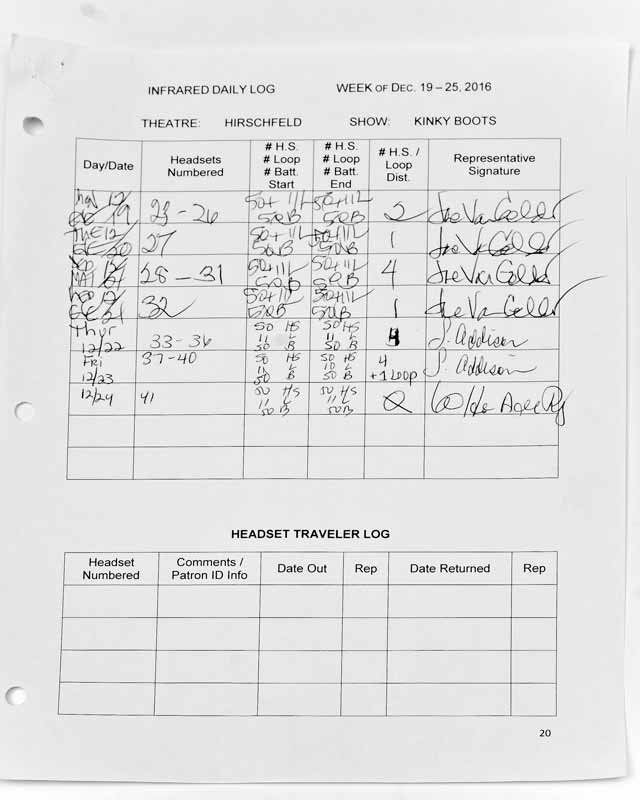 INFRARED DAILY LOG WEEK OF DEC. 19 – 25, 2016
THEATRE: HIRSCHFELD SHOW: KINKY BOOTS
Day/Date Headsets Numbered # H.S. # Loop # Batt. Start # H.S. # Loop # Batt. End # H.S. / Loop Dist. Representative Signature
12/19 25-26 50+11L 50B 50+11L 50B 2 Joe Van Gelder
TUE 12/20 27 50+11L 50B 50+11L 50B 1 Joe Van Gelder
MAT 21 28-31 50+11L 50B 50+11L 50B 4 Joe Van Gelder
EVE 21 32 50+11L 50B 50+11L 50B 1 Joe Van Gelder
Thur 12/22 33-36 50 HS 11 L 50 B 50 HS 11 L 50 B 4 S. Addison
FRI 12/23 37-40 50 HS 11 L 50 B 50 HS 10 L 50 B 4 +1 Loop S. Addison
12/24 41 50 HS 11 L 50 B 50 HS 11 L 50B
HEADSET TRAVELER LOG
Headset Numbered Comments / Patron ID Info Date Out Rep Date Returned Rep
20